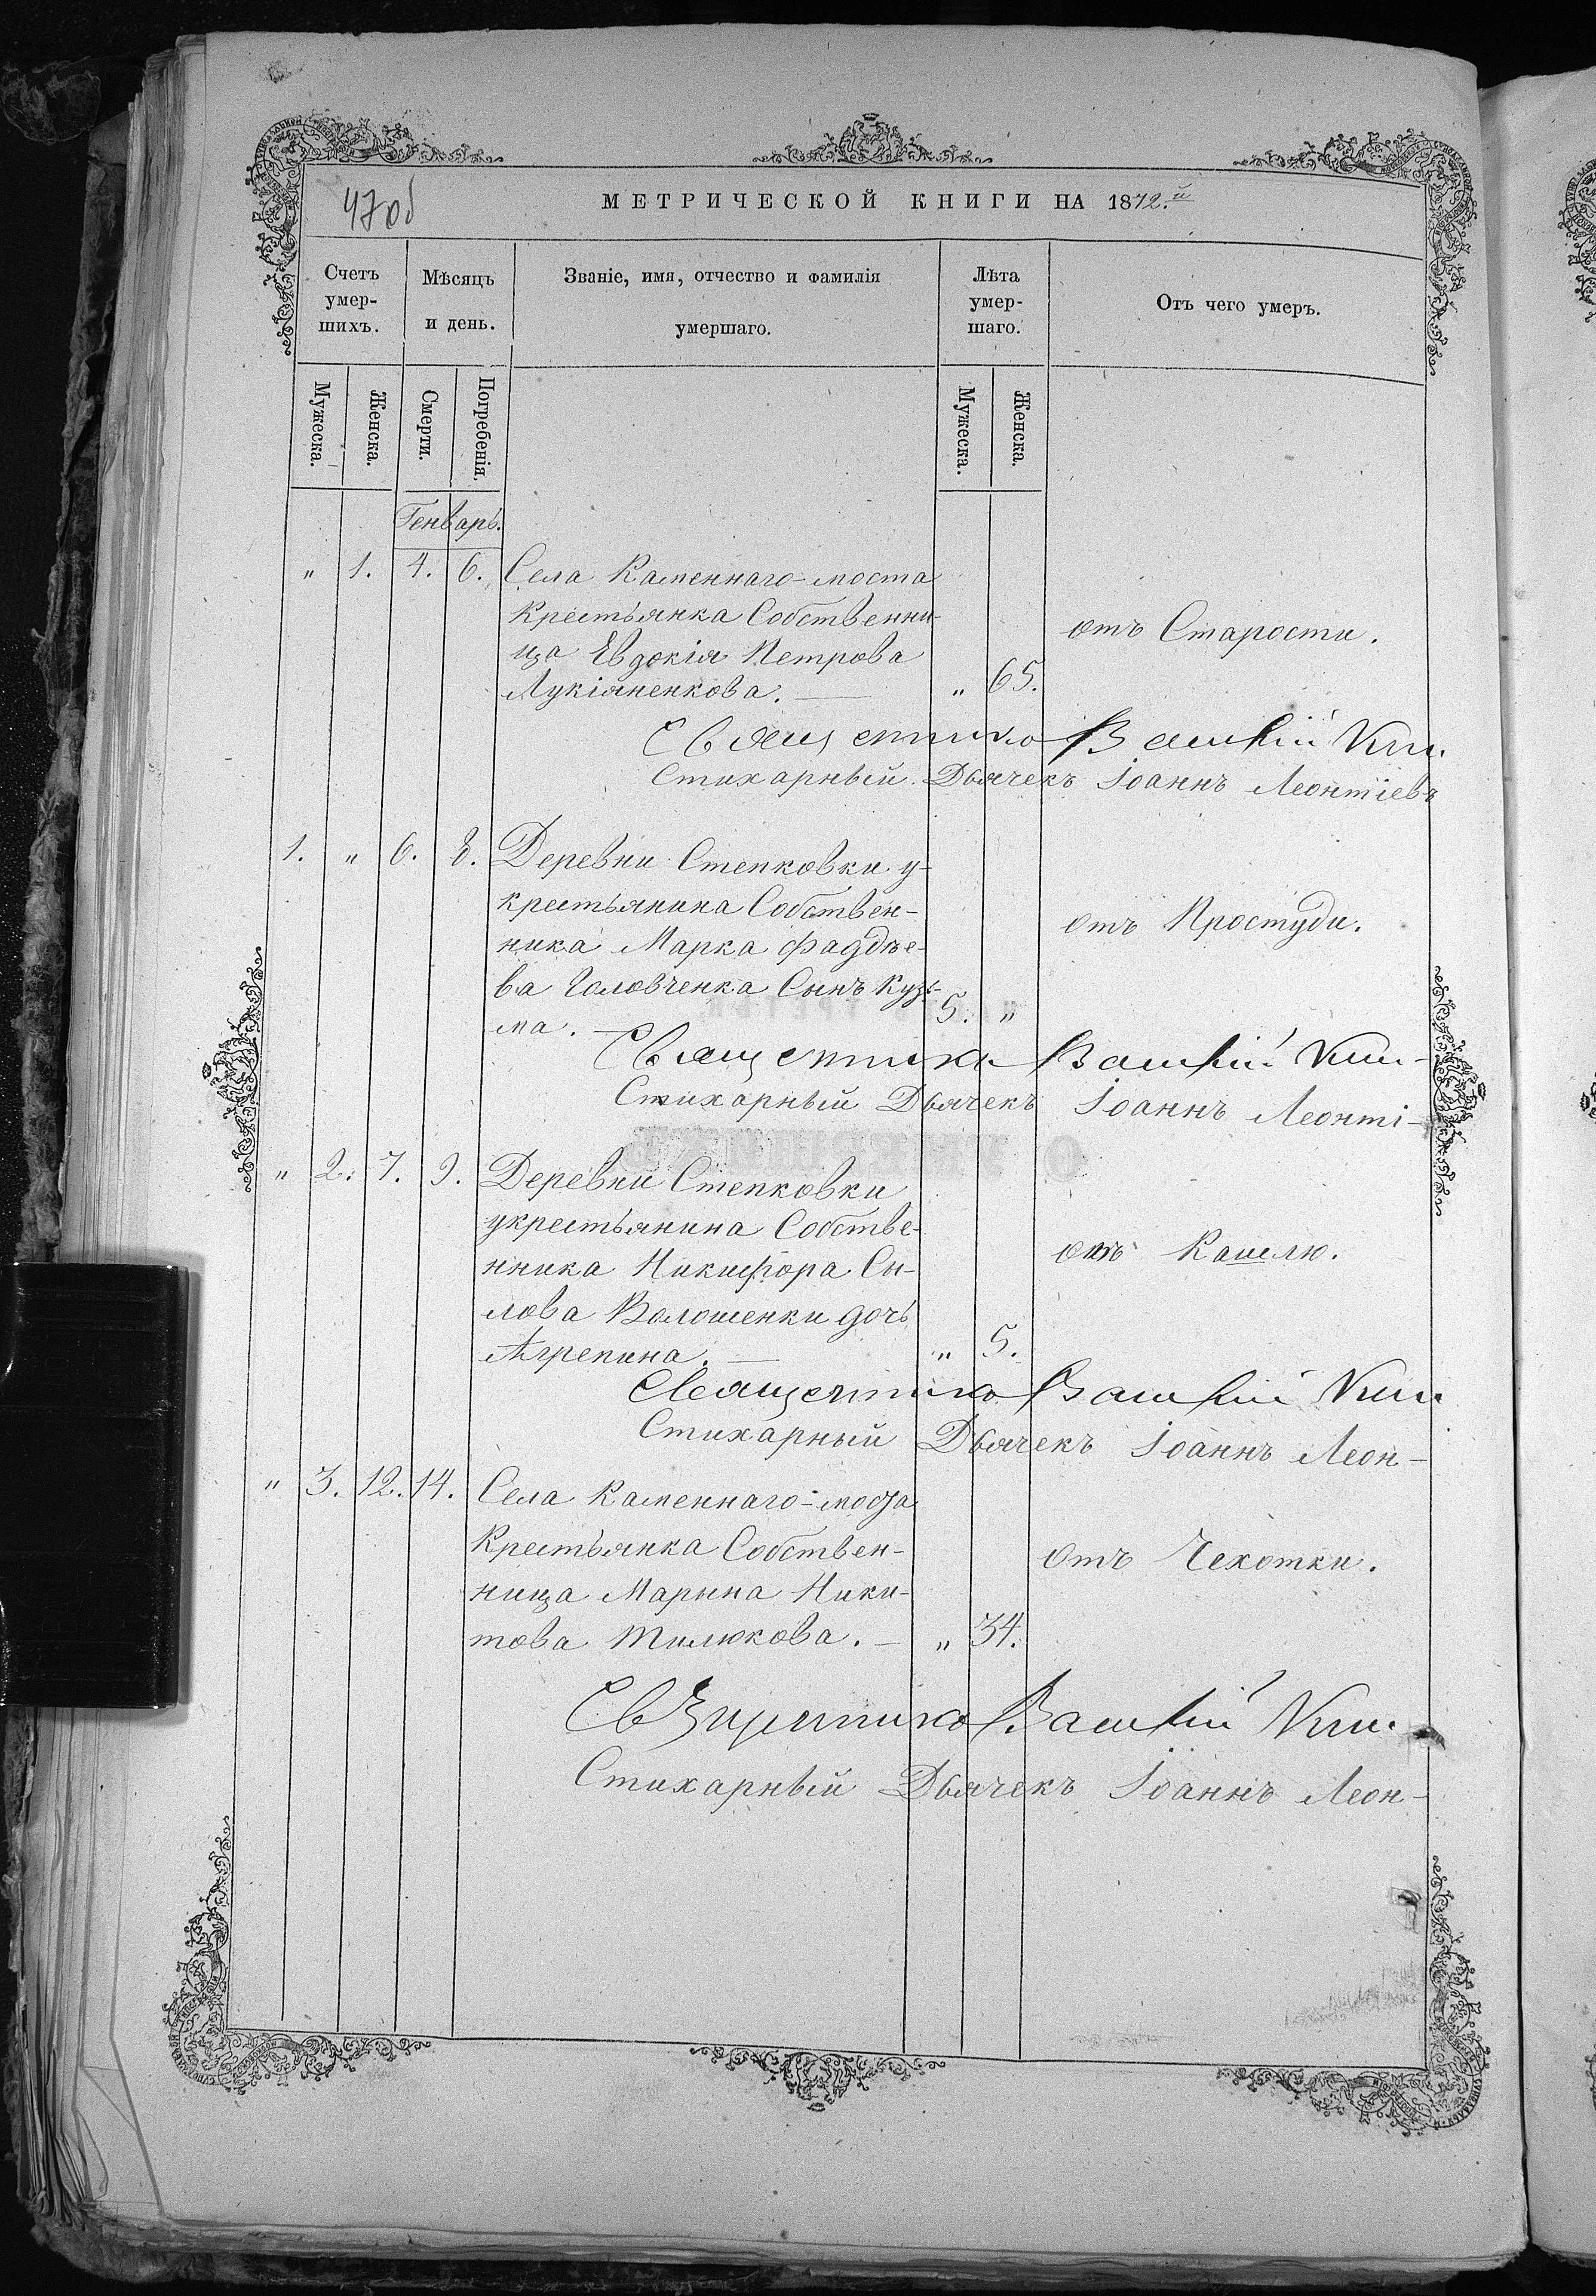 47об
МЕТРИЧЕСКОЙ КНИГИ НА 1872.й
Счетъ умер-шихъ.
Мѣсяцъ и день.
Званіе, имя, отчество и фамилія умершаго.
Лѣта умер-шаго.
Отъ чего умеръ.
Мужеска.
Женска.
Смерти.
Погребенія.
Мужеска.
Женска.
Генварь.
" 1. 4. 6. Села Каменнаго-моста
Крестьянка Собственни-
ца Евдокія Петрова
отъ Старости.
Лукіяненкова. — " 65.
Священникъ Василій
Стихарный Дьячекъ Іоаннъ Леонтіевъ
1. " 6. 8. Деревни Степковки у-
крестьянина Собствен-
ника Марка Фаддѣе-
отъ Простуди.
ва Головченка Сынъ Кузь-
ма. — 5. "
Священникъ Василій
Стихарный Дьячекъ Іоаннъ Леонті-
" 2. 7. 9. Деревни Степковки
укрестьянина Собстве-
нника Никифора Си-
отъ Кашлю.
лова Волошенки дочь
Агрепина. — " 5.
Священникъ Василій
Стихарный Дьячекъ Іоаннъ Леон-
" 3. 12. 14. Села Каменнаго-моста
Крестьянка Собствен-
отъ Чехотки.
ница Марына Ники-
това Тилюкова. — " 34.
Василій
Стихарный Дьячекъ Іоаннъ Леон-